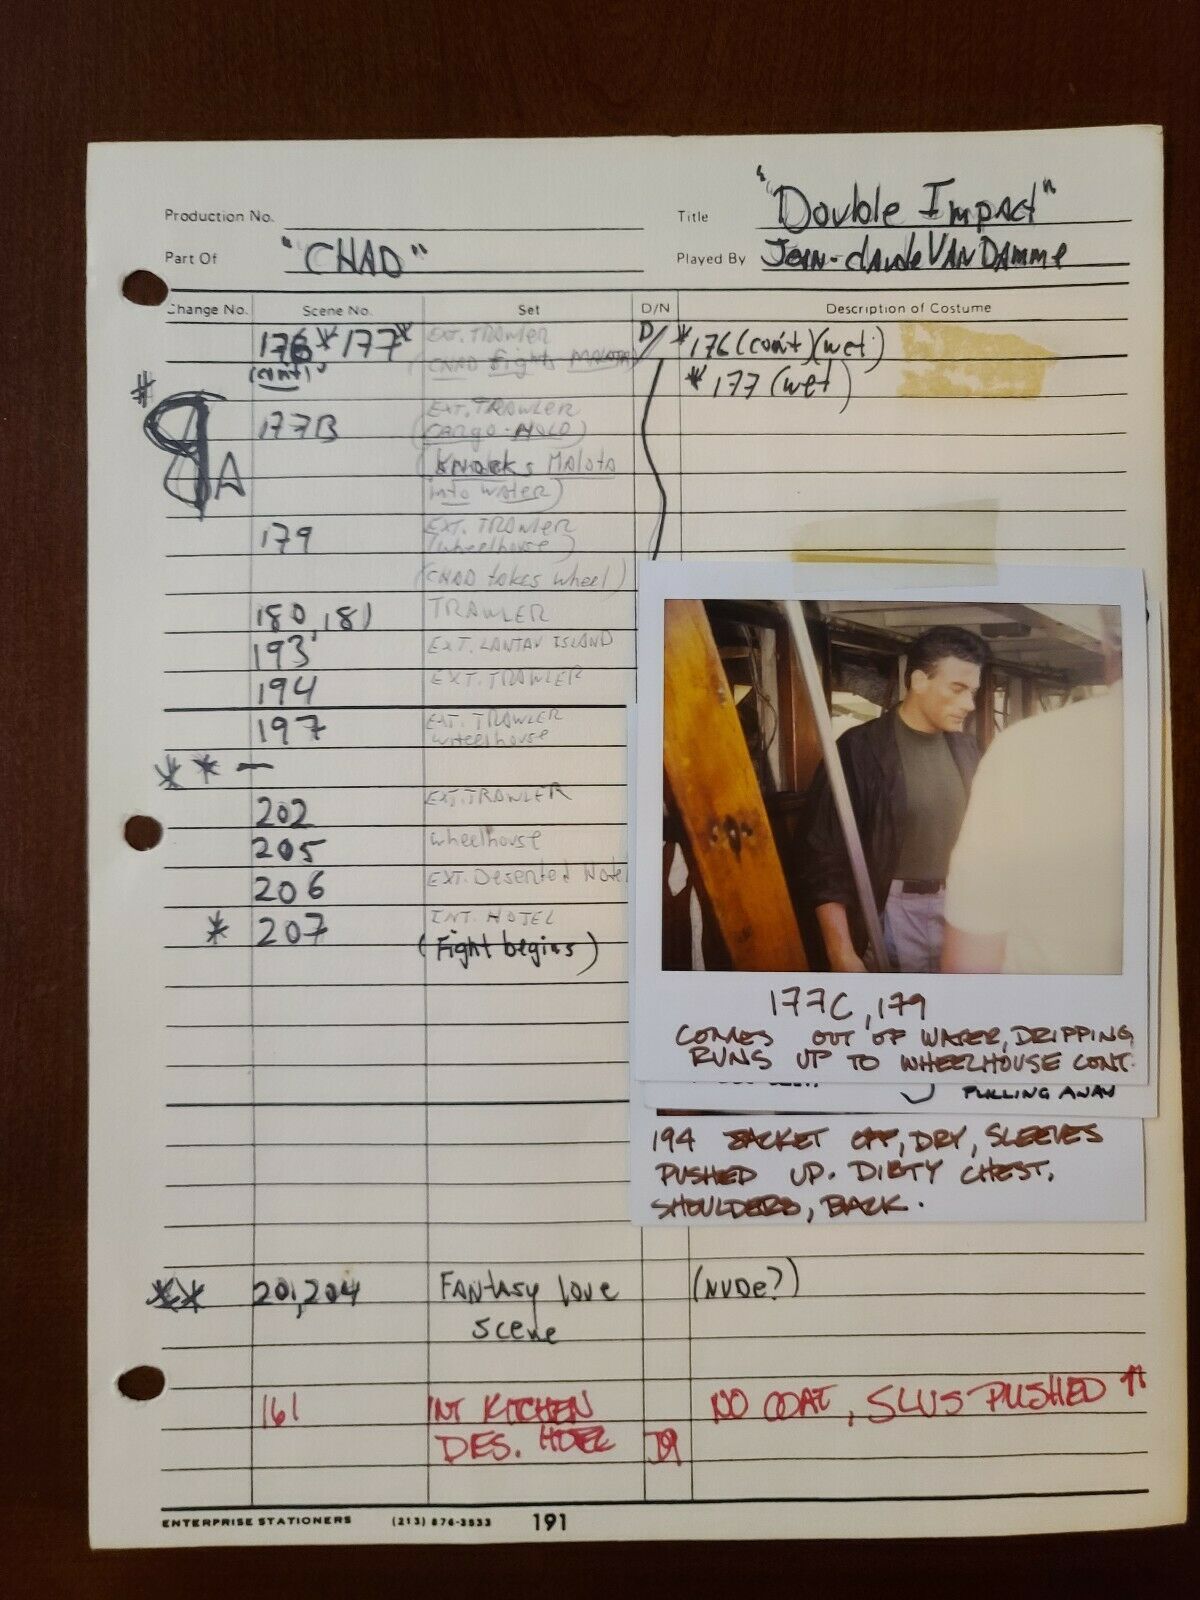 Production No.
Title "Double Impact"
Part Of "CHAD"
Played By Jean-claude VAN DAMME
Change No. Scene No. Set D/N Description of Costume
176 * 177 * EXT. TRAWLER D/ * 176 (cont) (wet)
(cont) (CHAD fights MALOTA) * 177 (wet)
#
9A 177B EXT. TRAWLER
(cargo-HOLD)
(Knocks Malota
into water)
179 EXT. TRAWLER
(wheelhouse)
(CHAD takes wheel)
180, 181 TRAWLER
193 EXT. LANTAV ISLAND
194 EXT. TRAWLER
197 EXT. TRAWLER
wheelhouse
* * —
202 EXT. TRAWLER
205 wheelhouse
206 EXT. Deserted Hotel
* 207 INT. HOTEL
(Fight begins)
177C, 179
COMES OUT OF WATER, DRIPPING
RUNS UP TO WHEELHOUSE CONT.
PULLING AWAY
194 JACKET OFF, DRY, SLEEVES
PUSHED UP. DIRTY CHEST,
SHOULDERS, BACK.
** 201, 204 FANTASY love (NUDE?)
scene
161 INT KITCHEN NO COAT, SLVS PUSHED ↑↑
DES. HOTEL
ENTERPRISE STATIONERS (213) 876-3533 191